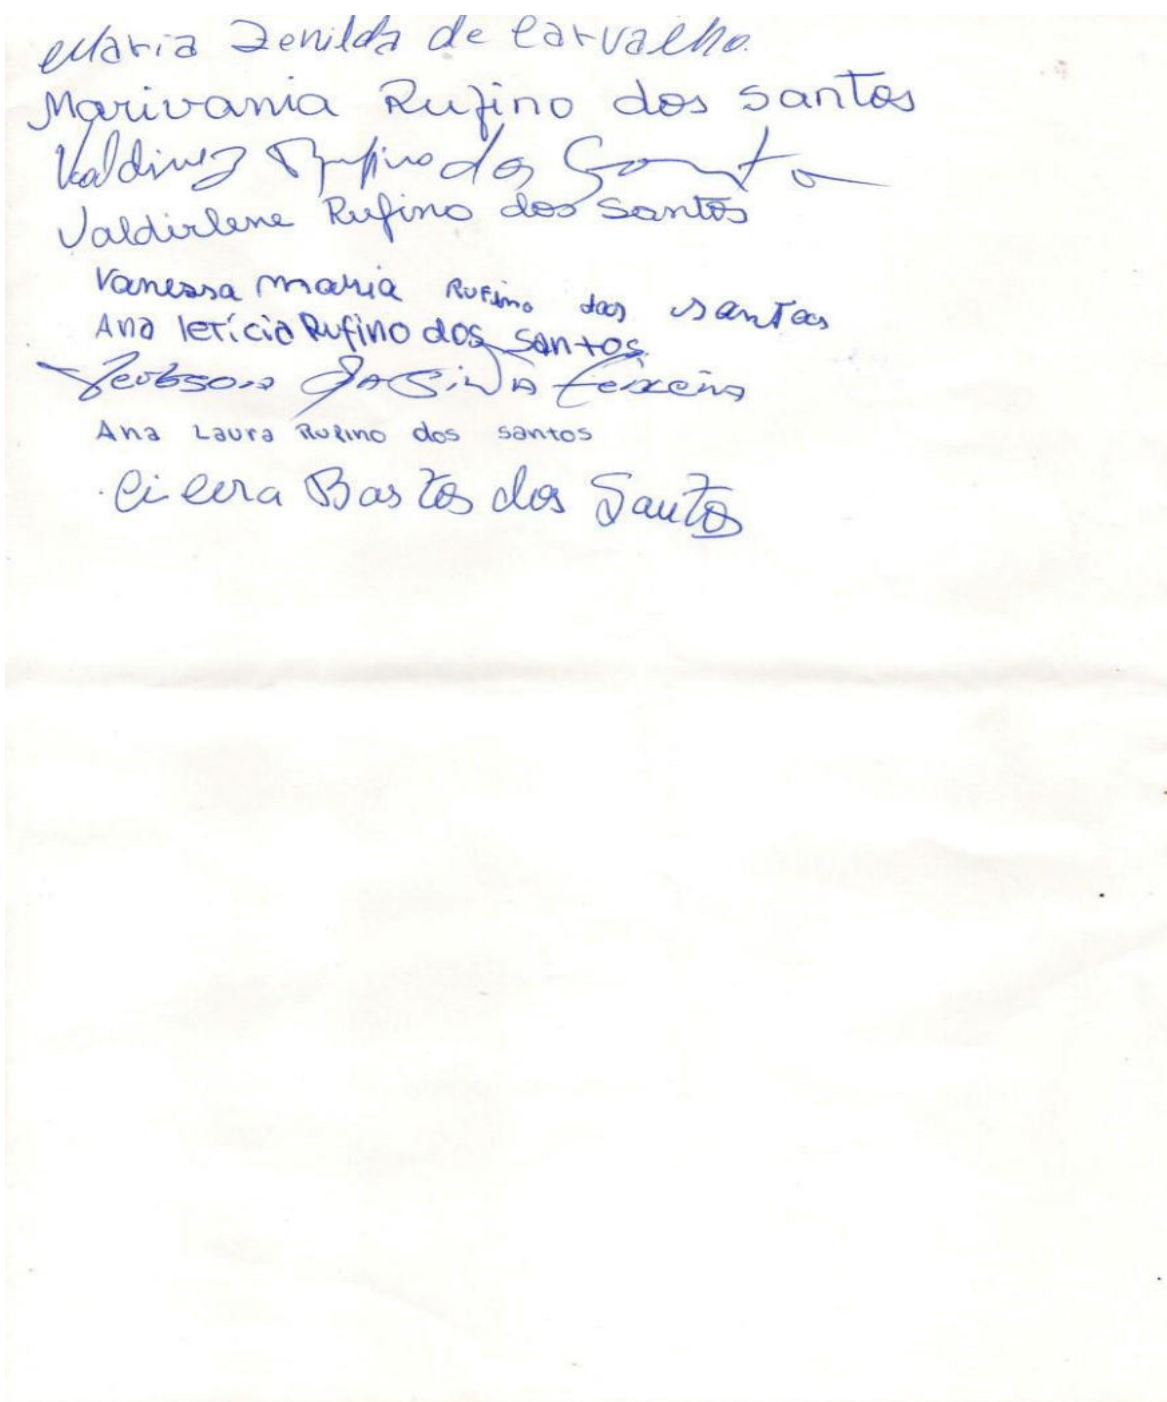 Maria Zenilda de Carvalho.
Marivania Rufino dos santos
Valdinez Rufino dos Santos
Valdirlene Rufino dos Santos
Vanessa maria Rufino dos santos
Ana letícia Rufino dos santos.
da Silva teixeira
Ana Laura Rufino dos santos
Cicera Bastos dos Santos